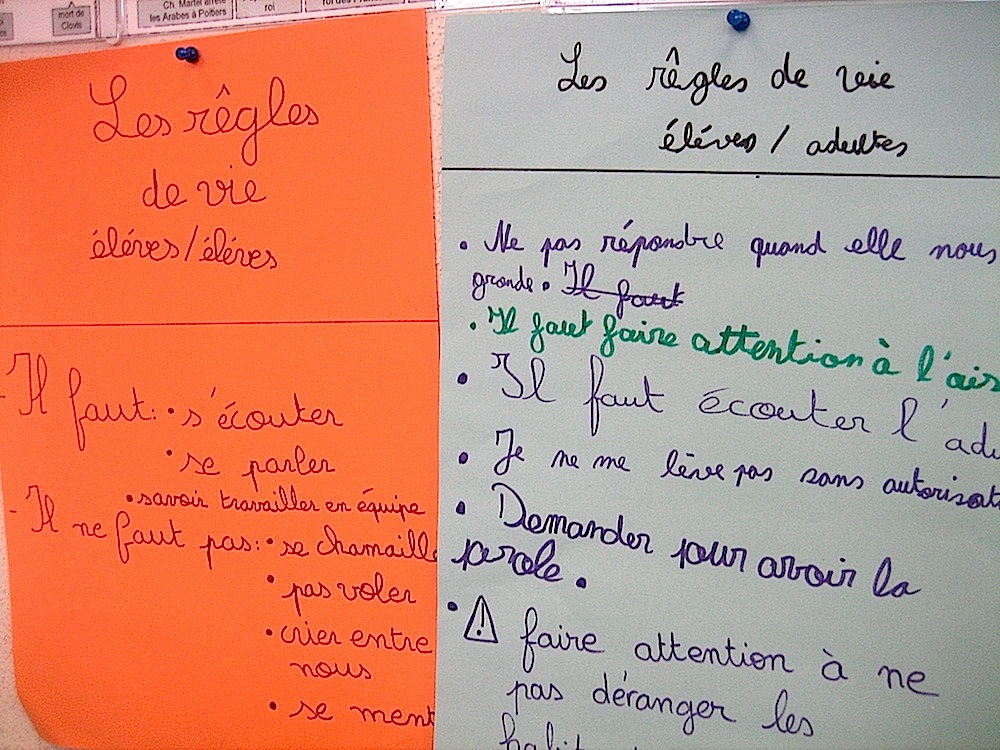 mort de
Clovis
Ch. Martel arrête
les Arabes à Poitiers
roi
Les rêgles
de vie
éléves/éléves
- Il faut: • s'écouter
• se parler
• savoir travailler en équipe
- Il ne faut pas: • se chamaille
• pas voler
• crier entre
nous
• se ment
Les rêgles de vie
éléves / adultes
• Ne pas répondre quand elle nous
gronde. Il faut
• Il faut faire attention à l'ais
• Il faut écouter l'adu
• Je ne me lève pas sans autorisat
• Demander pour avoir la
parole.
• ⚠ faire attention à ne
pas déranger les